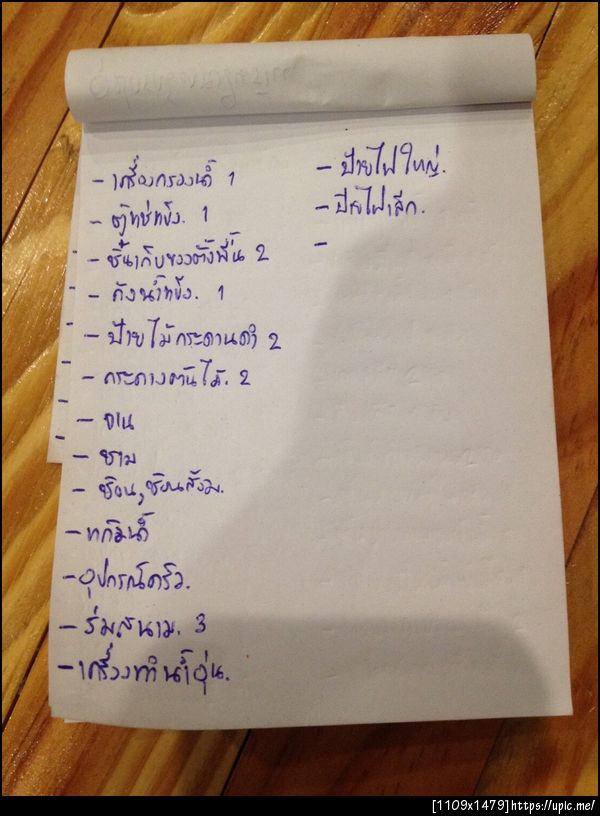 - เครื่องกรองน้ำ 1
- ตู้แช่แข็ง. 1
- ชั้นเก็บของตั้งพื้น 2
- ถังน้ำแข็ง. 1
- ป้ายไม้กระดานดำ 2
- กระถางต้นไม้. 2
- จาน
- ชาม
- ช้อน, ช้อนส้อม.
- แก้วน้ำ
- อุปกรณ์ครัว.
- ร่มสนาม. 3
- เครื่องทำน้ำอุ่น.
- ป้ายไฟใหญ่.
- ป้ายไฟเล็ก.
-
[1109x1479]https://upic.me/